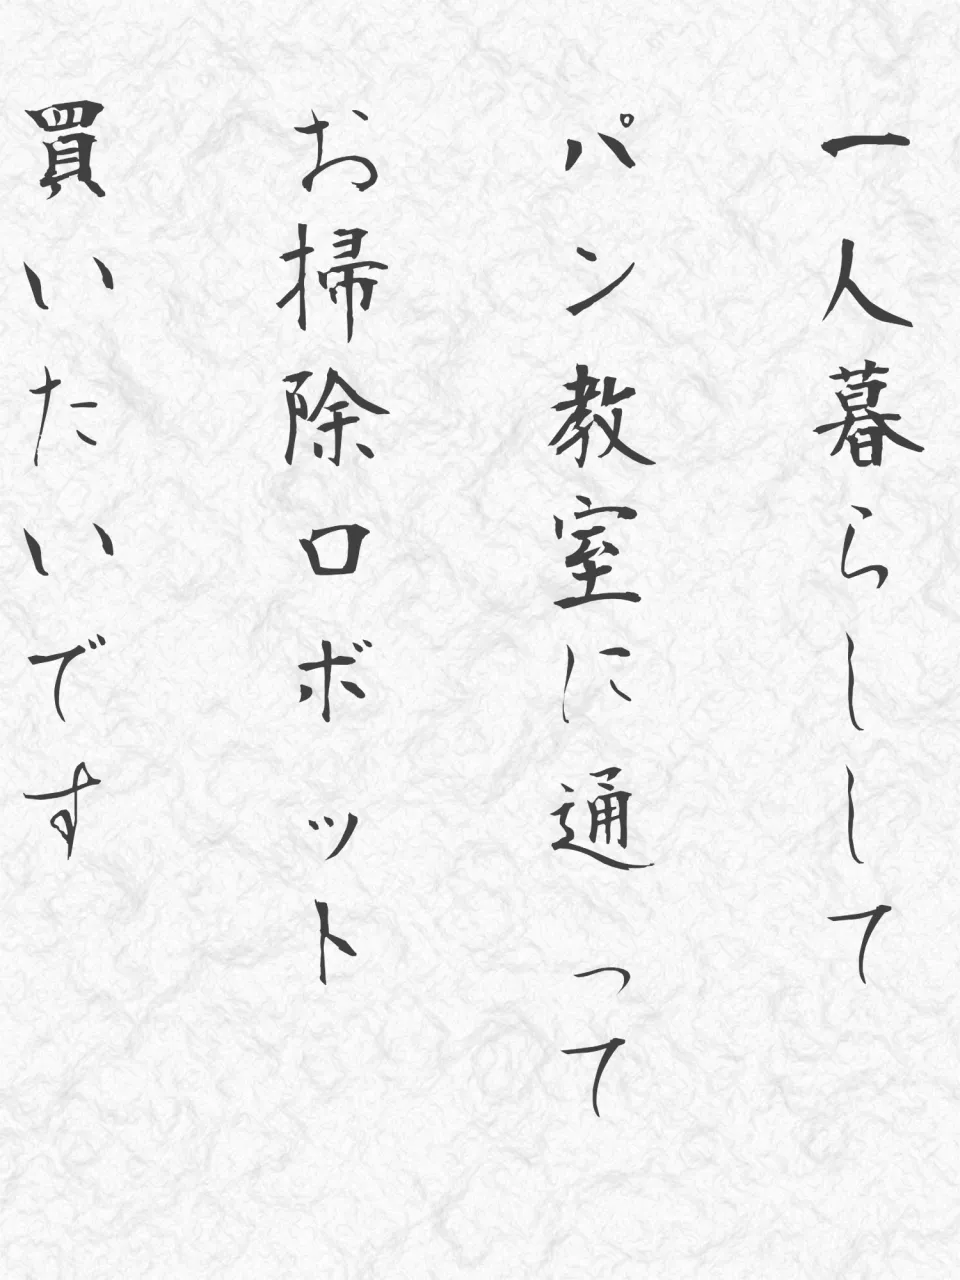 一人暮らしして
パン教室に通って
お掃除ロボット
買いたいです